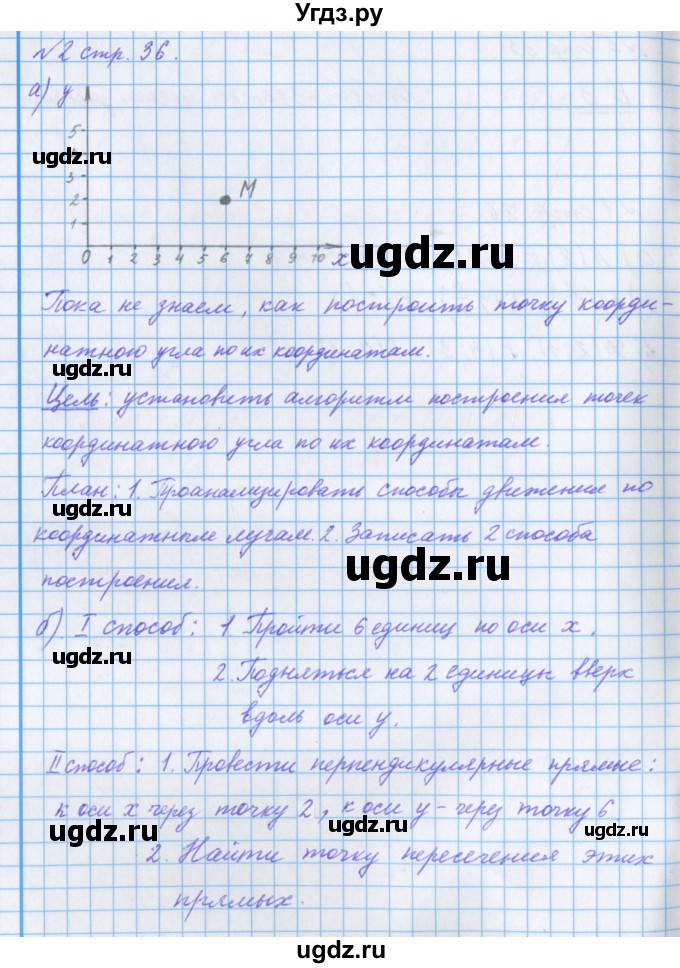 Угдз.ру
№2 стр. 36.
а) y
5
4
3
2
1
M
0 1 2 3 4 5 6 7 8 9 10 x
Пока не знаем, как построить точку коорди-
натного угла по их координатам.
Цель: установить алгоритм построения точек
координатного угла по их координатам.
План: 1. Проанализировать способы движения по
координатным лучам. 2. Записать 2 способа
построения.
б) I способ: 1. Пройти 6 единиц по оси x.
2. Подняться на 2 единицы вверх
вдоль оси y.
II способ: 1. Провести перпендикулярные прямые:
к оси x через точку 2, к оси y - через точку 6
2. Найти точку пересечения этих
прямых.
ugdz.ru
ugdz.ru
ugdz.ru
ugdz.ru
ugdz.ru
ugdz.ru
ugdz.ru
ugdz.ru
ugdz.ru
ugdz.ru
ugdz.ru